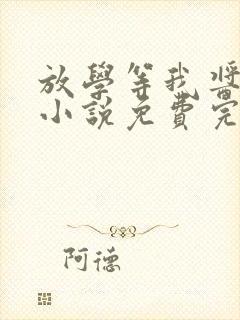 放學等我 醬
小說免費完
阿德